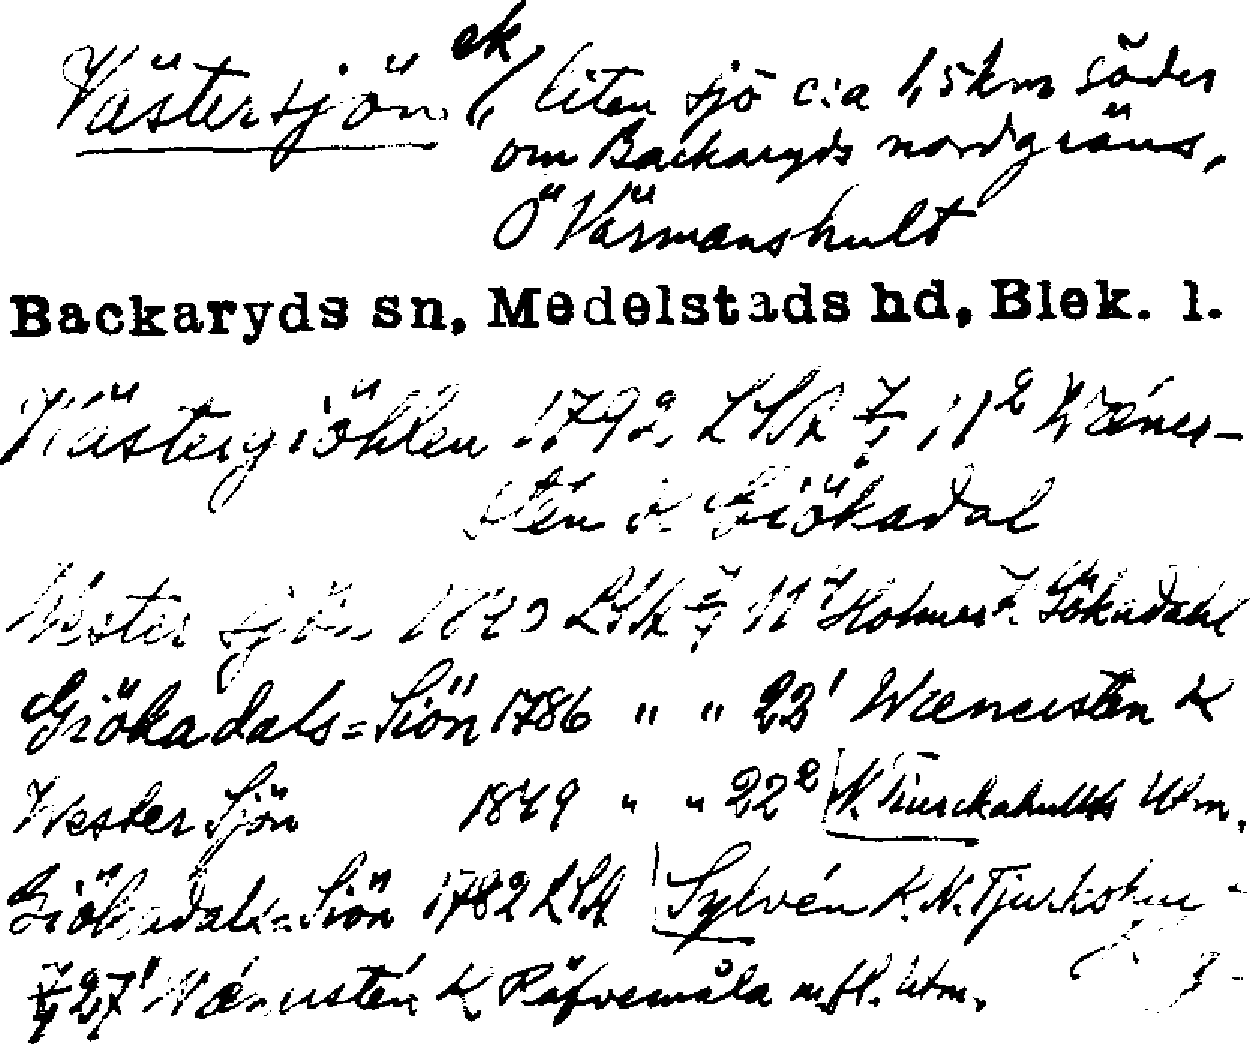 Västersjön ek, liten sjö c:a 1,5 km söder
om Backaryds nordgräns,
Ö Värmanshult
Backaryds sn, Medelstads hd, Blek. l.
Wästergiöhlen 1792 LSA 11² Wæner-
stén K. Giökadal
Wester sjön 18 LSA 11 Holmer K. Gökadahl
Giökadals=Siön 1786 " " 22' Wænersten K
Wester Sjön 1849 " " 22² N. Tiurckahults Utm.
Giökadals=Siön 1782 LSA Sylvén K. N. Tjurkohu-
27' Wænerstén K Räfvemåla m.fl. Utm.